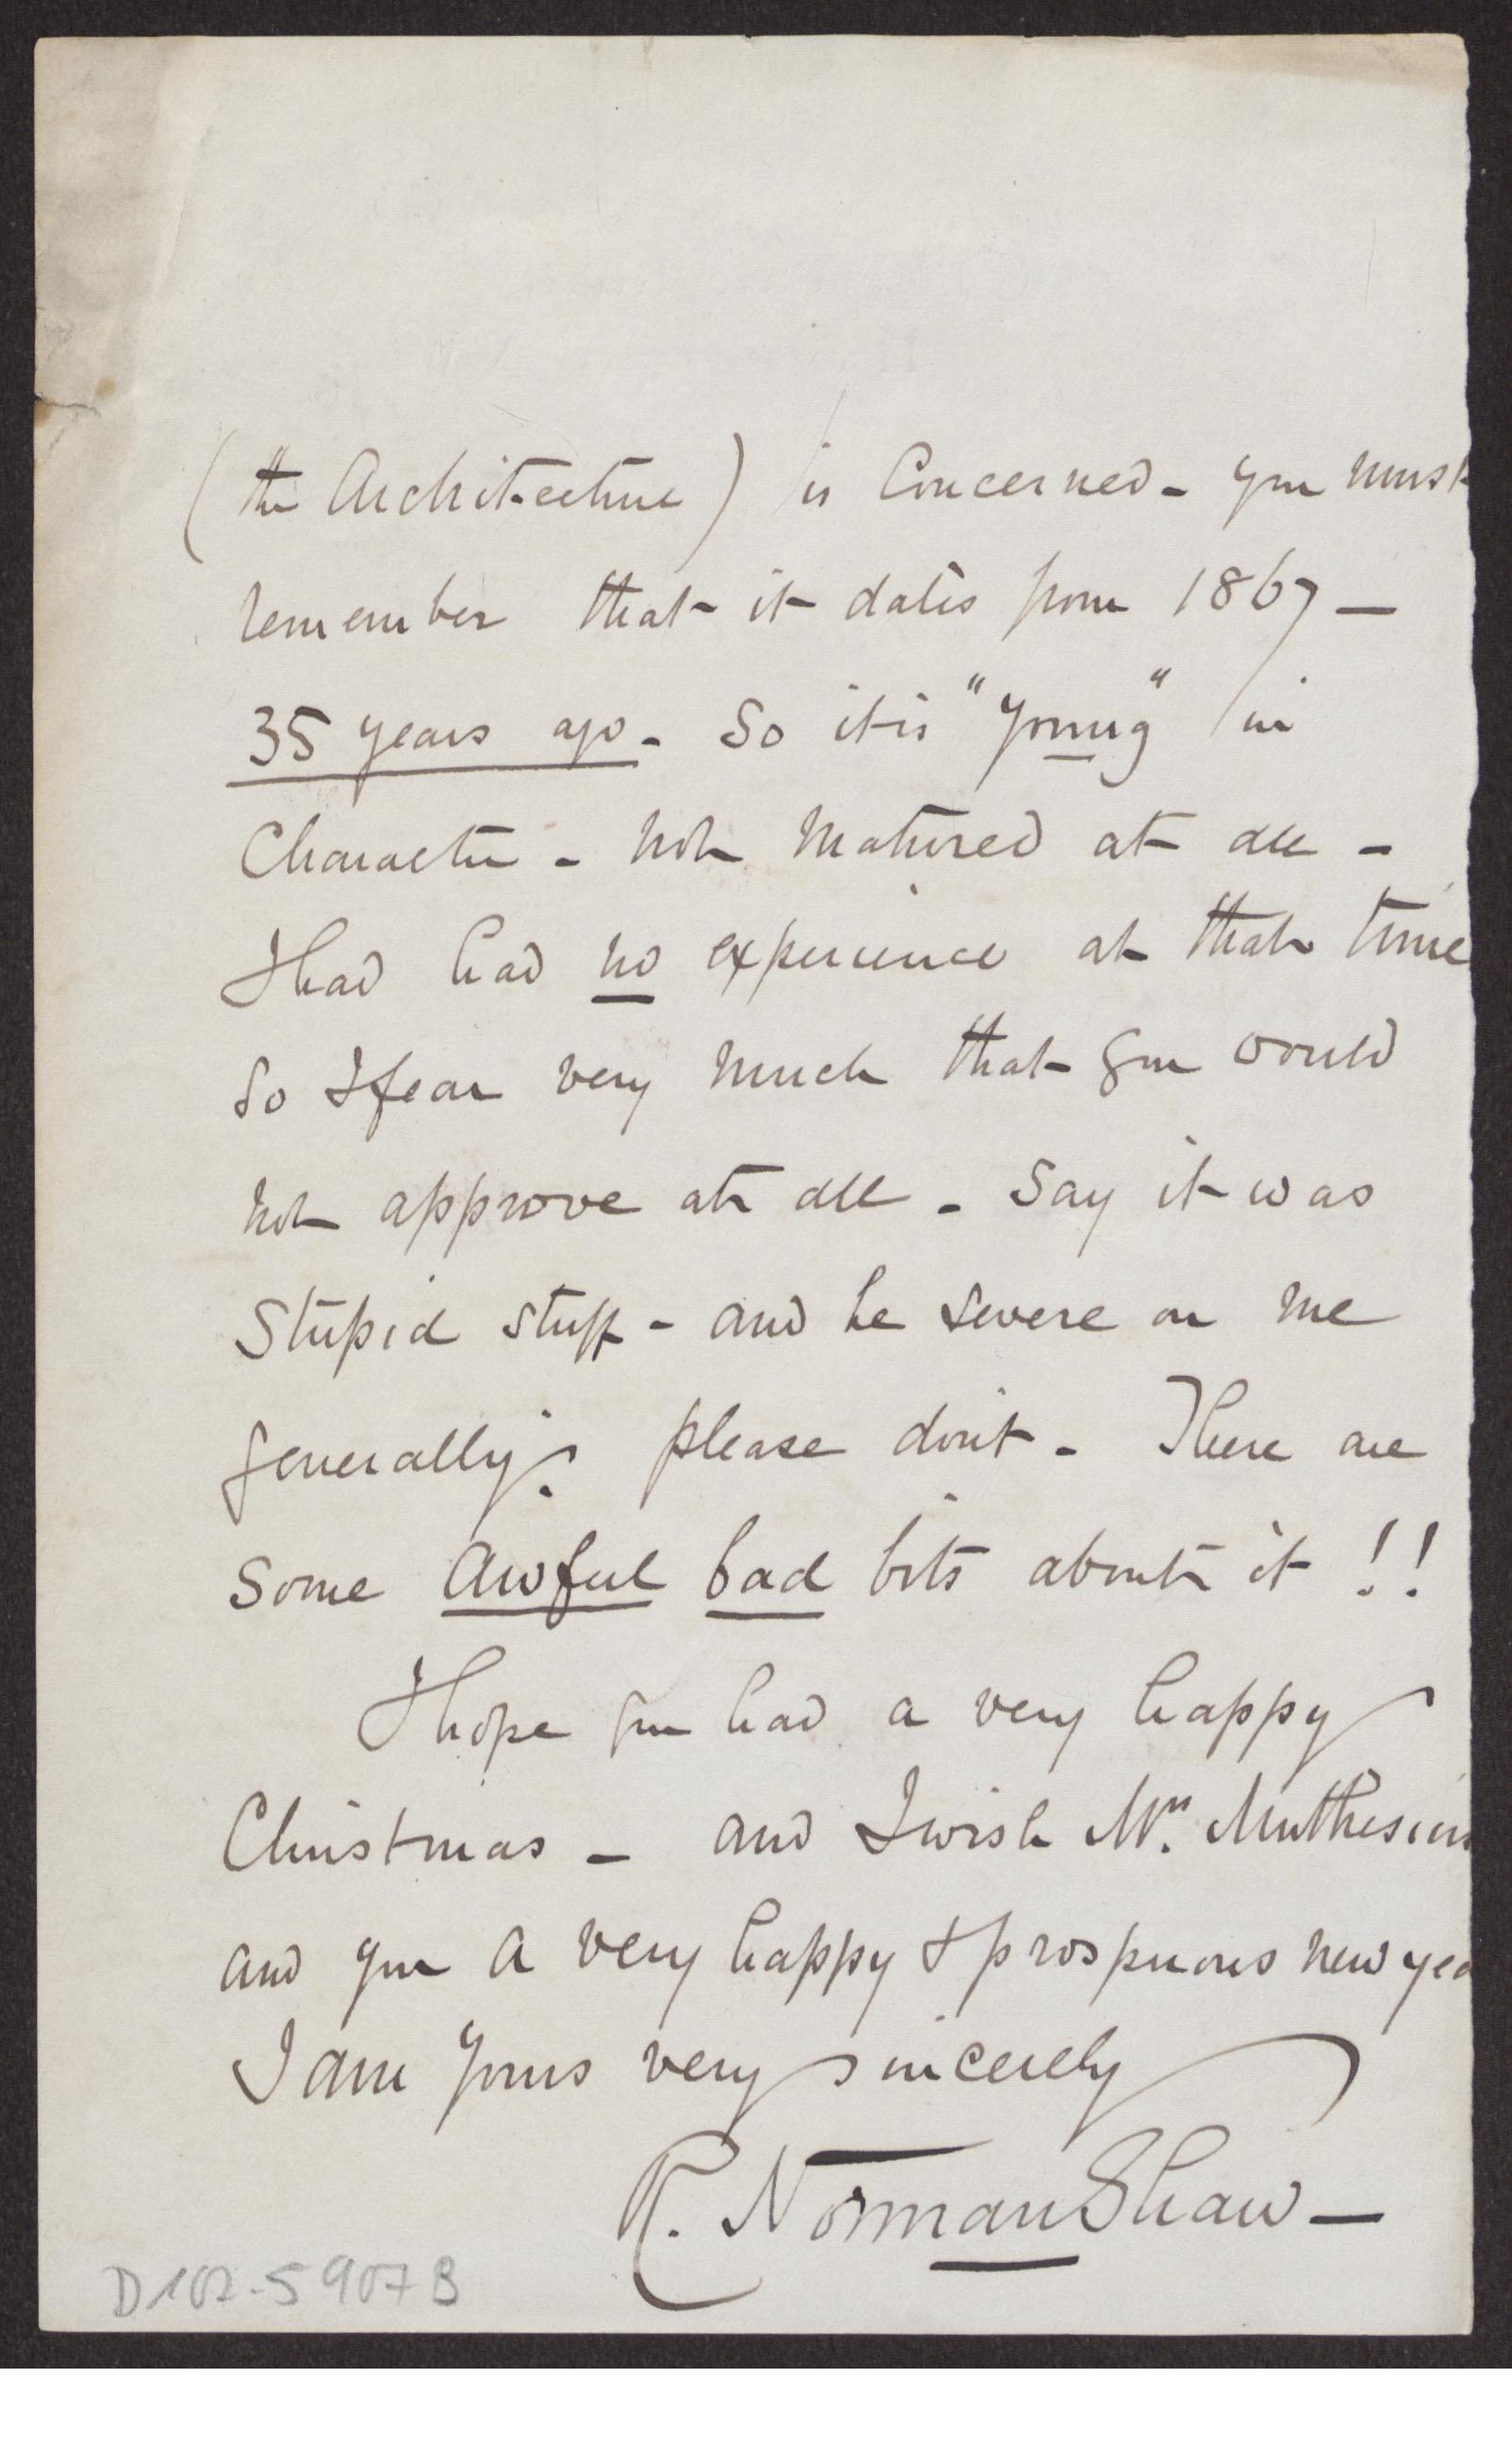 (the Architecture) is Concerned - you must
remember that it dates from 1867 -
35 years ago - So it is "young" in
Character - not matured at all -
I had had no experience at that time
So I fear very much that you would
not approve at all - Say it was
Stupid stuff - and be severe on me
generally? please don't - There are
Some Awful bad bits about it !!
I hope you had a very happy
Christmas - and I wish Mrs. Muthesius
and you a very happy & prosperous new yea
I am yours very sincerely
R. Norman Shaw -
D102-5907B